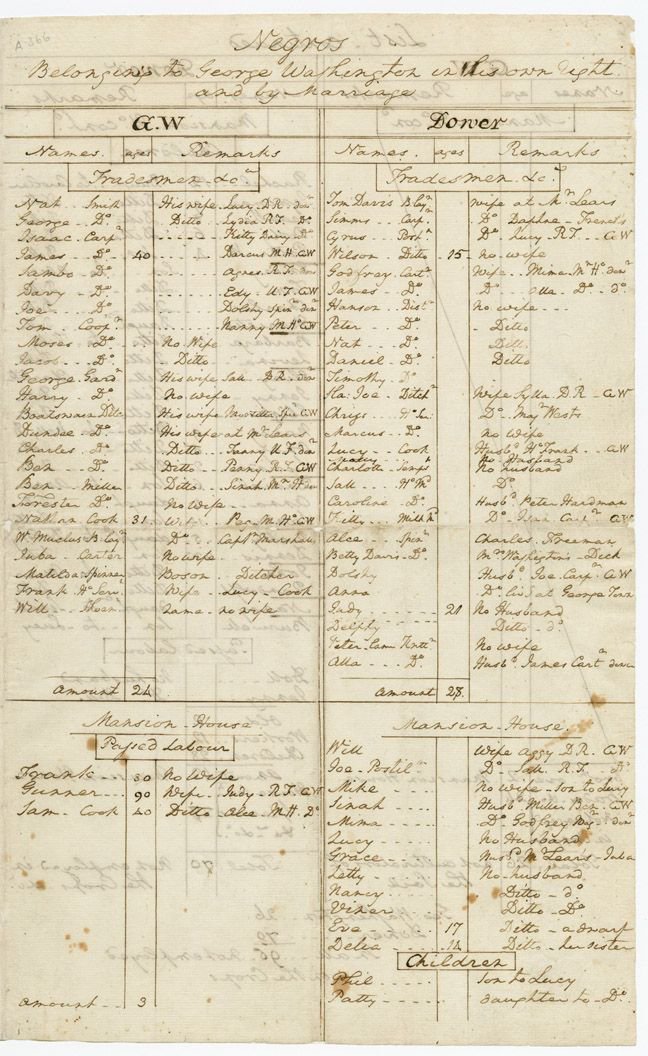 A 366
Negros
Belonging to George Washington in his own right
and by Marriage
G.W
Names. ages Remarks
Tradesmen &c
Nat. Smith His wife Lucy D.R. dowr
George Do Ditto Lydia R.F. Do
Isaac. Carpr Kitty Dairy Do
James Do 40 Darcus M.H. GW
Sambo. Do Agnes R.F. dowr
Davy Do Edy U.F. GW
Joe Do Dolshy Spinr dowr
Tom Coopr Nanny M.Ho GW
Moses Do No Wife
Jacob. Do Ditto
George Gardr His wife Sall D.R. dowr
Harry Do No wife
Boatswain Ditr His wife Myrtilla Spinr GW
Dundee Do His wife at Mr Lears
Charles Do Ditto Fanny U.F. dowr
Ben Do Ditto Penny R.F. GW
Ben Miller Ditto Sinah Mn H dowr
Forester Do No wife
Nathan Cook 31 Wife Peg M.Ho GW
W. Muclus B. layr Do Captn Marshall
Juba Carter No wife
Matilda Spinner Boson Ditcher
Frank Ho Servt Wife Lucy Cook
Will Shoemr Lame no wife
amount 24
Mansion House
Passed Labour
Frank 80 No Wife
Gunner 90 Wife Judy R.F. GW
Sam Cook 40 Ditto Alce M.H. Do
amount 3
Dower
Names. ages Remarks
Tradesmen &c
Tom Davis B.layr wife at Mr Lears
Simms Carpr Do Daphne French's
Cyrus Postn Do Lucy R.F. GW
Wilson Ditto 15 No wife
Godfrey Cartr Wife Mima Mn Ho dowr
James Do Do Alla Do do
Hanson Distr No wife
Peter Do Ditto
Nat Do Ditto
Daniel Do Ditto
Timothy Do
Joe Ditchr Wife Sylla D.R. GW
Chriss Ho Ser Do Majr Wests
Marcus Do No wife
Lucy Cook Husbd Ho Frank GW
Charlotte Semps No husband
Sall Ho Md Do
Caroline Do Husbd Peter Hardman
Kitty Milk Md Do Isaac Carr GW
Alce Spinr Charles Freeman
Betty Davis Do Mrs Washington's Dick
Dolshy Husbd Joe Carpr GW
Anna Do lives at George Town
Judy 21 No Husband
Delphy Ditto do
Peter Lame Knittr No wife
Alla Do Husbd James Cartr dower
amount 28
Mansion House
Will Wife Aggy D.R. GW
Joe Postiln Do Sall R.F. Do
Mike No wife son to Lucy
Sinah Husbd Miller Ben GW
Mima Do Godfrey dowr
Lucy No Husband
Grace Husbd Mr Lears Juba
Letty No husband
Nancy Ditto do
Viner Ditto Do
Eve 17 Ditto a dwarf
Delia 14 Ditto her sister
Children
Phil Son to Lucy
Patty Daughter to Do